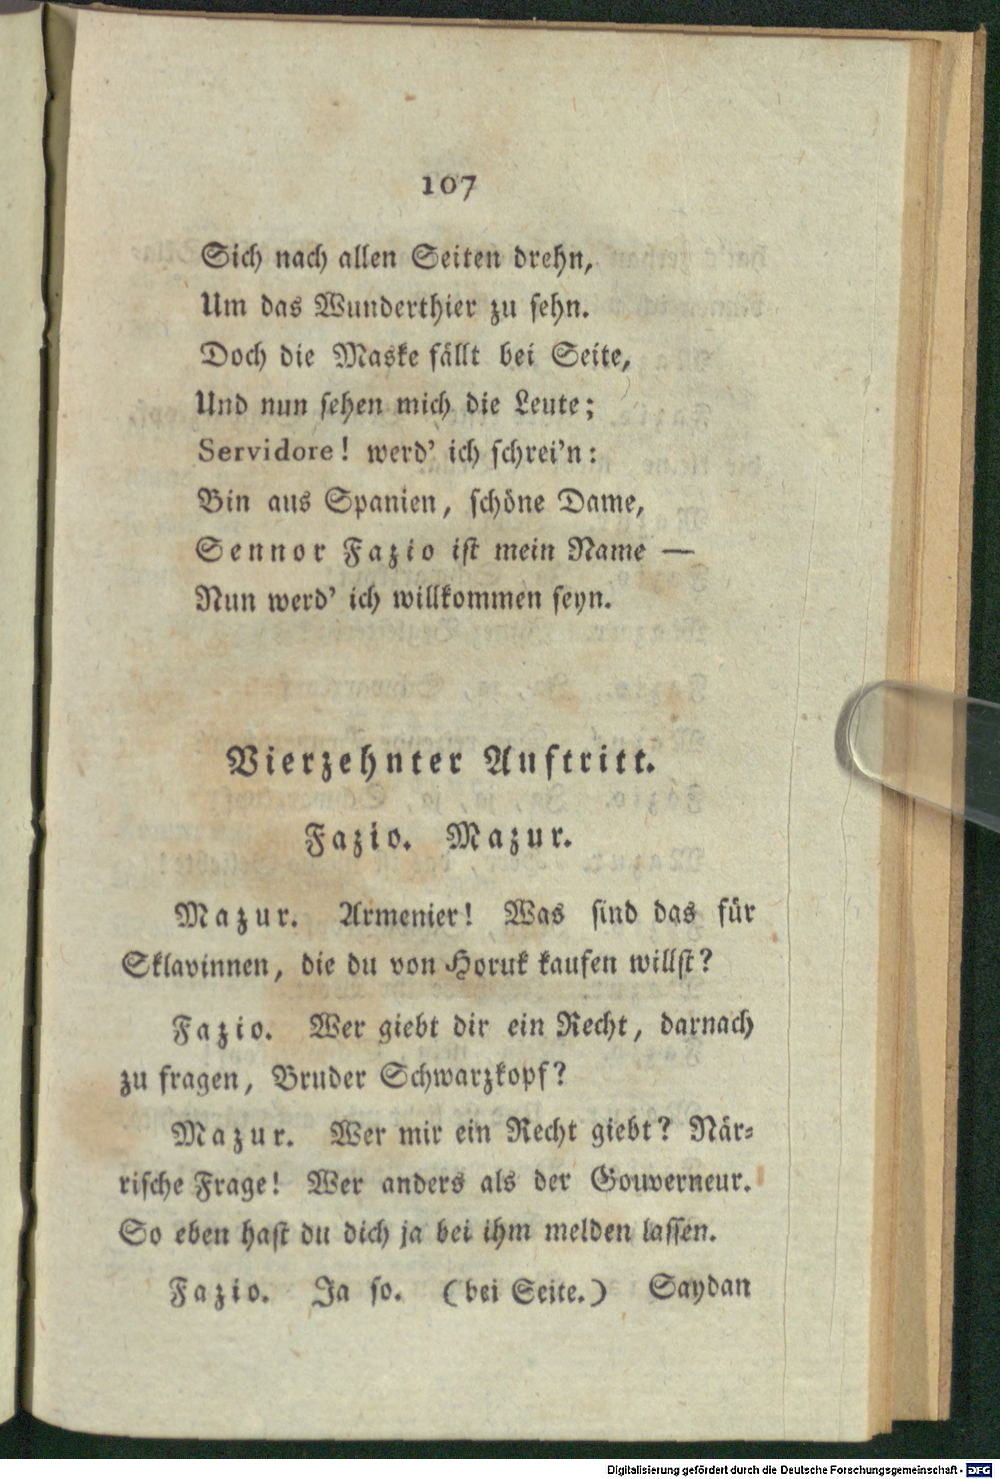 107
Sich nach allen Seiten drehn,
Um das Wunderthier zu sehn.
Doch die Maske fällt bei Seite,
Und nun sehen mich die Leute;
Servidore! werd' ich schrei'n:
Bin aus Spanien, schöne Dame,
Sennor Fazio ist mein Name —
Nun werd' ich willkommen seyn.
Vierzehnter Auftritt.
Fazio. Mazur.
Mazur. Armenier! Was sind das für
Sklavinnen, die du von Horuk kaufen willst?
Fazio. Wer giebt dir ein Recht, darnach
zu fragen, Bruder Schwarzkopf?
Mazur. Wer mir ein Recht giebt? När-
rische Frage! Wer anders als der Gouverneur.
So eben hast du dich ja bei ihm melden lassen.
Fazio. Ja so. (bei Seite.) Saydan
Digitalisierung gefördert durch die Deutsche Forschungsgemeinschaft - DFG